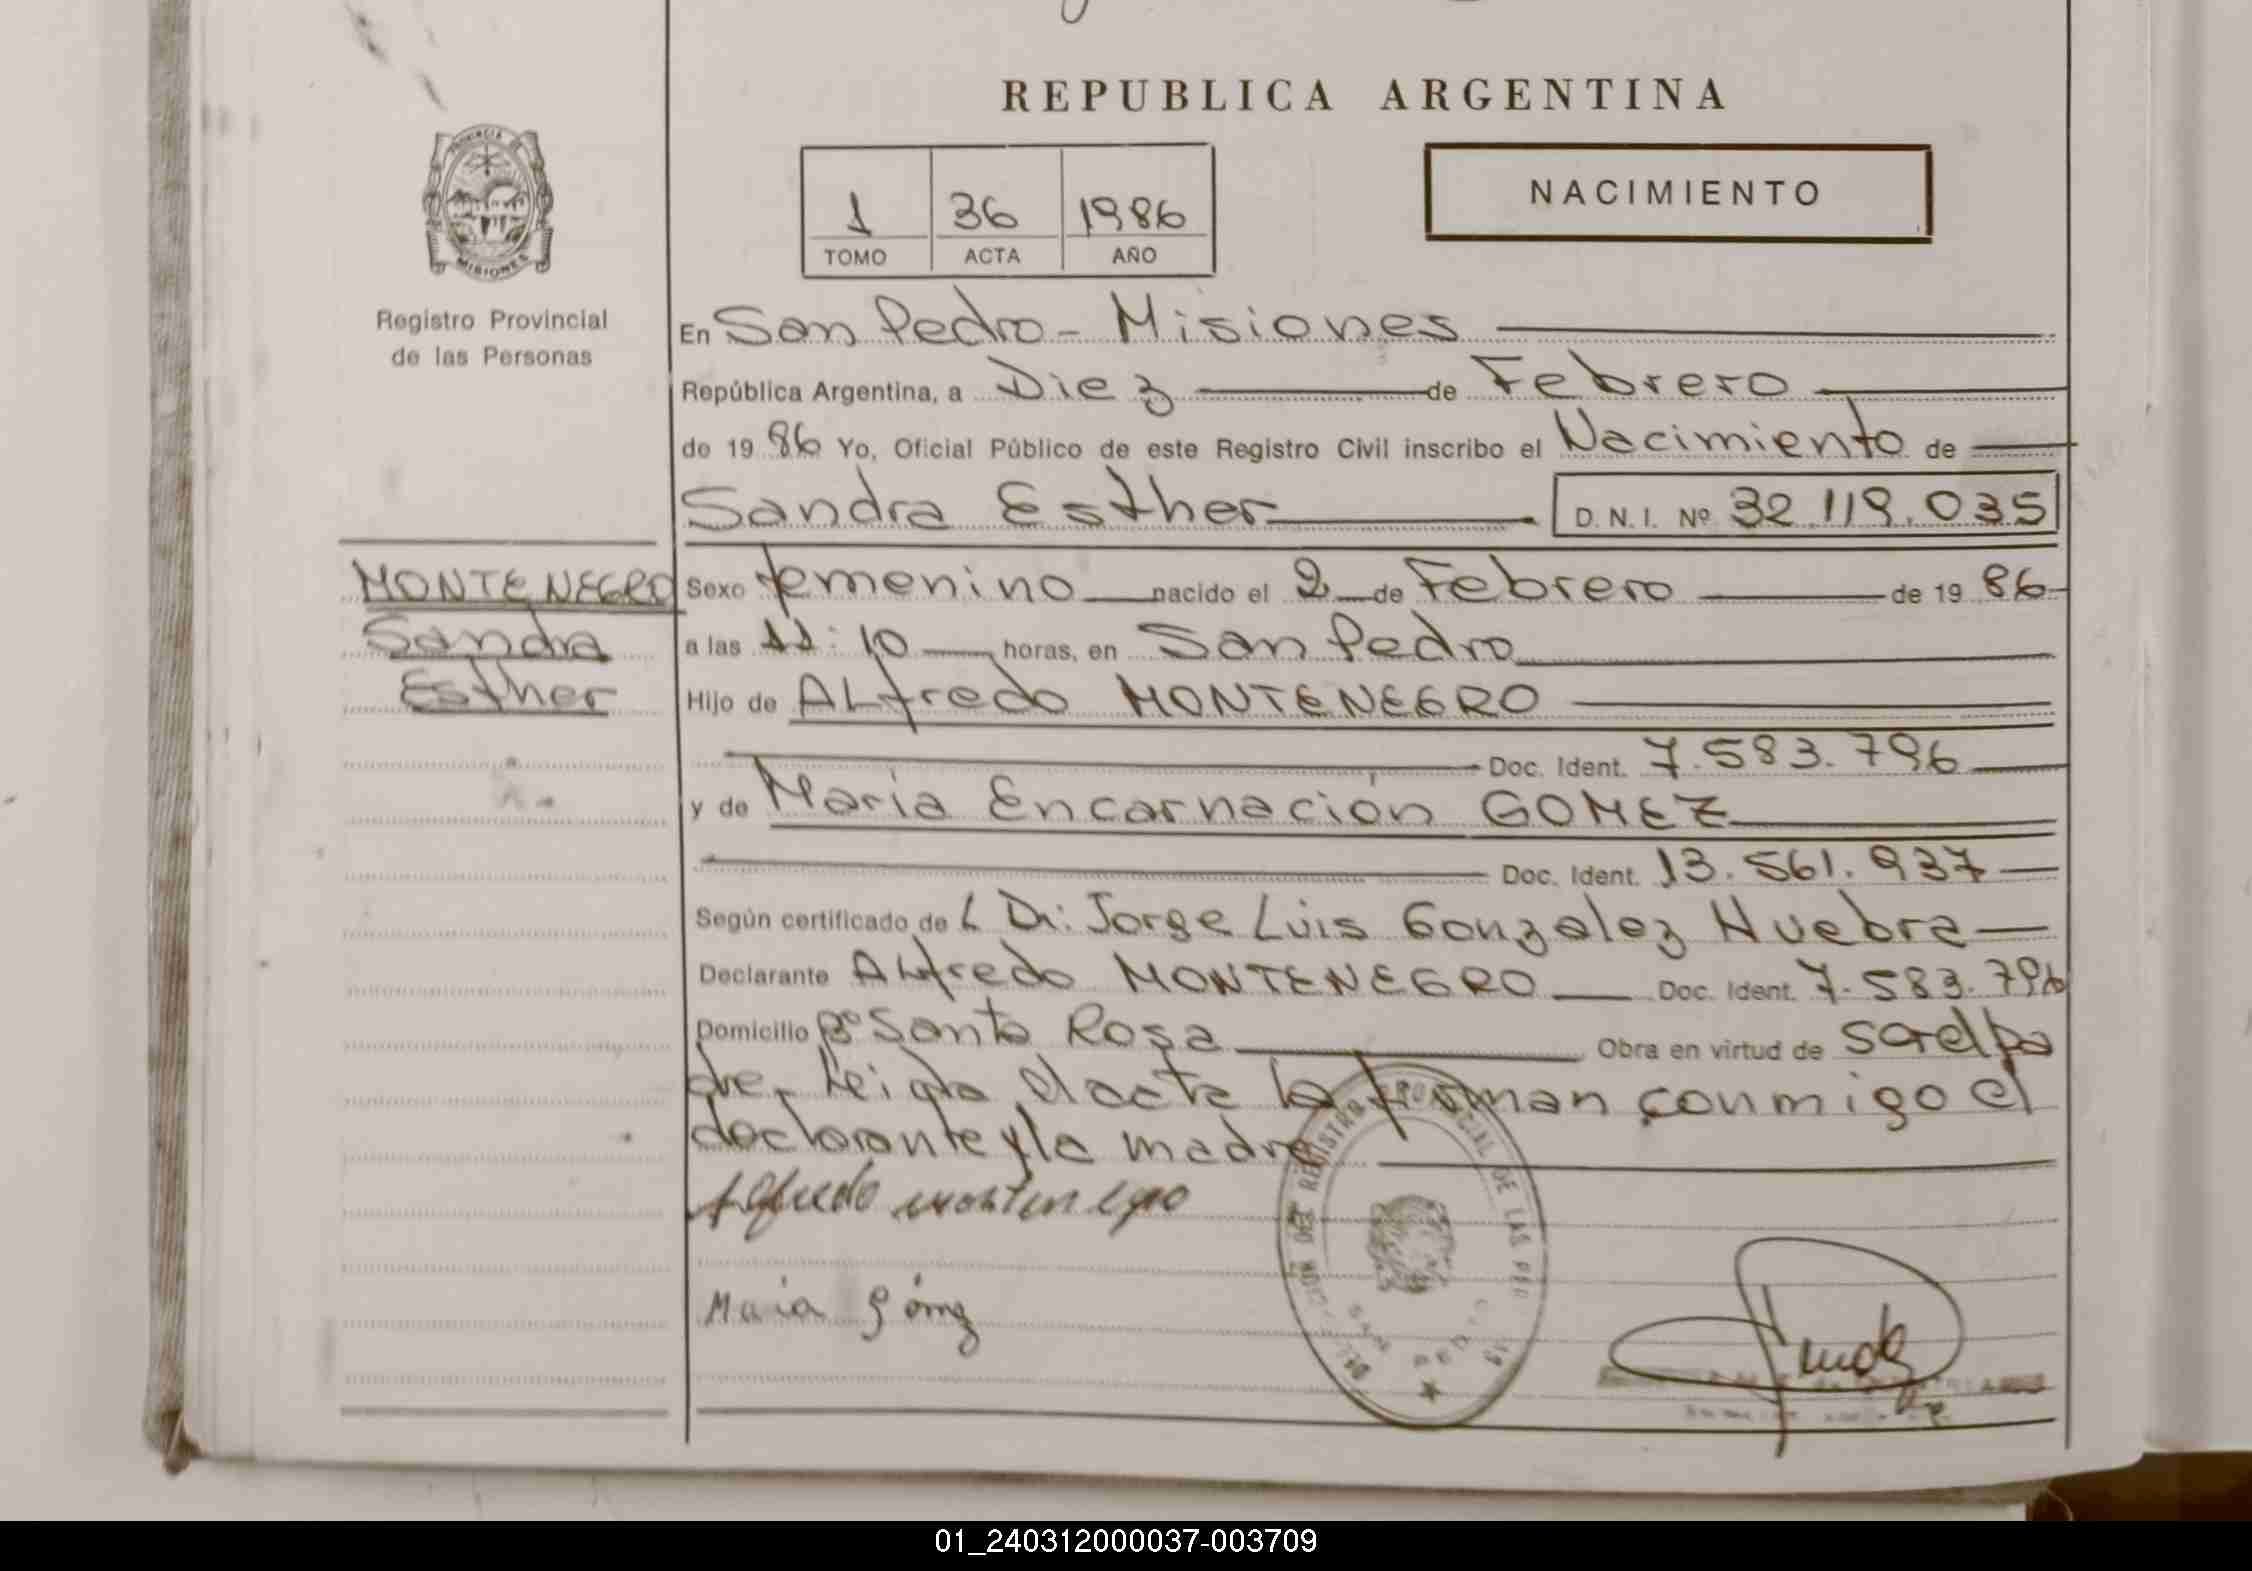 REPUBLICA ARGENTINA
PROVINCIA DE
MISIONES
Registro Provincial
de las Personas
1 36 1986
TOMO ACTA AÑO
NACIMIENTO
En San Pedro - Misiones
República Argentina, a Diez de Febrero
de 19 86 Yo, Oficial Público de este Registro Civil inscribo el Nacimiento de
Sandra Esther D. N. I. Nº 32.119.035
MONTENEGRO
Sandra
Esther
Sexo femenino nacido el 2 de Febrero de 19 86
a las 11:10 horas, en San Pedro
Hijo de ALfredo MONTENEGRO
Doc. Ident. 7.583.796
y de Maria Encarnación GOMEZ
Doc. Ident. 13.561.937
Según certificado de L Dr: Jorge Luis Gonzalez Nuebra
Declarante ALfredo MONTENEGRO Doc. Ident. 7.583.796
Domicilio Bº Santa Rosa Obra en virtud de ser el pa
dre. Leida el acta la firman conmigo el
declarante y la madre
Alfredo montenegro
Maria Gómez
DEL REGISTRO PROVINCIAL DE LAS PER
SAN PEDRO
01_240312000037-003709